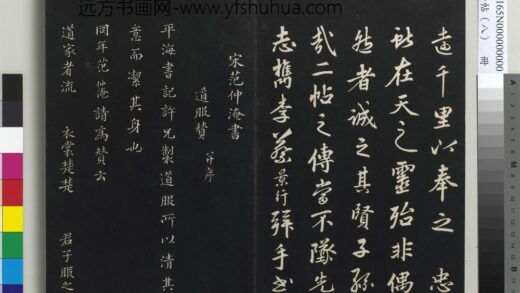 远方书画网-www.yfshuhua.com
165N000000000
帖（八） 冊
遠千里以奉之 忠
獻在天之靈殆非偶
然者誠之其賢子孫
哉二帖之傳當不墜先
志檇李蔡景行拜手書
宋范仲淹書
道服贊 并序
平海書記許兄製道服所以清其
意而潔其身也
同年范淹請爲贊云
道家者流 衣裳楚楚 君子服之